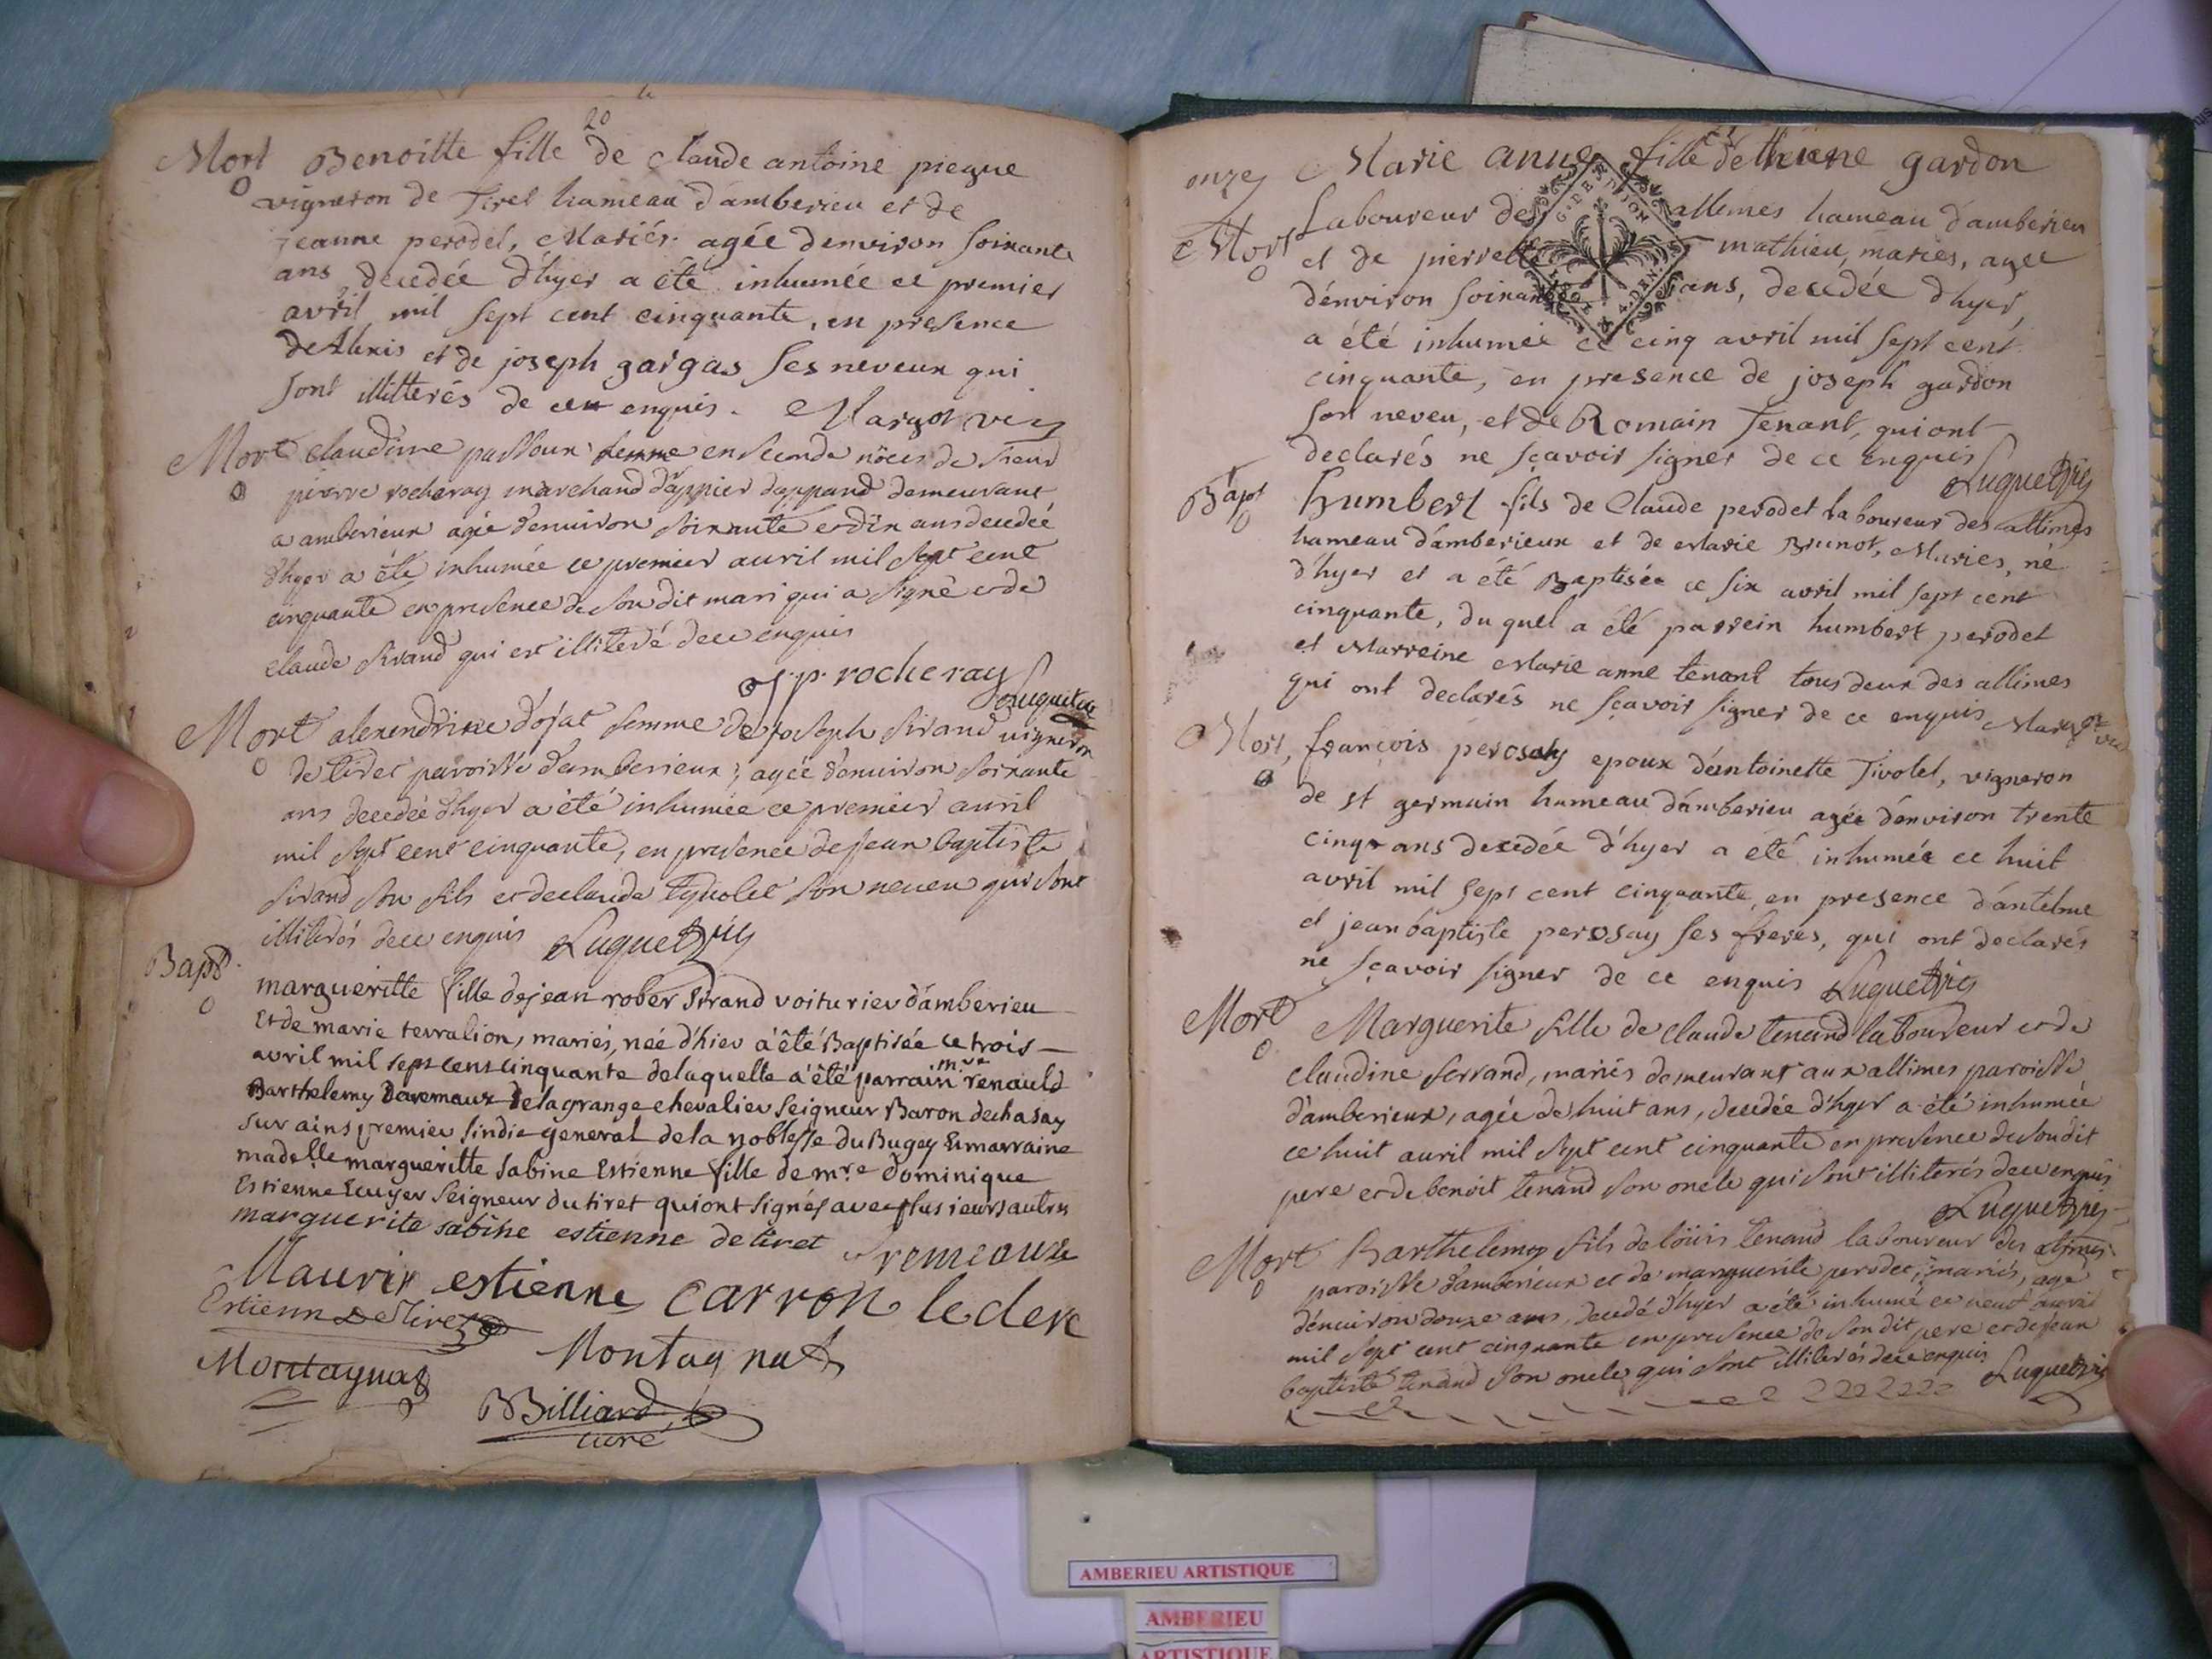 20
Mort Benoitte fille de Claude antoine piegue
vigneron de Tiret hameau d'amberieu et de
jeanne perodet, Mariés. agée denviron soixante
ans decedée d'hyer a été inhumée ce premier
avril mil sept cent cinquante, en presence
de Alexis et de joseph gargas ses neveux qui
sont illitterés de ce enquis. Margot vic
Mort claudine passoux femme en seconde nôces de sieur
pierre rocheray marchand demeurant
a amberieux agée denuiron soixante et dix ans decedeé
d'hyer a été inhumée ce premier auril mil sept cent
cinquante en presence de son dit mari qui a signé et de
claude sirand qui est illiteré de ce enquis
j. p. rocheray
Luquet vic
Mort alexendrine d'ojat femme de joseph sirand vigneron
de tiret paroisse d'amberieux, agée d'enuiron soixante
ans decedée d'hyer a été inhumée ce premier auril
mil sept cent cinquante, en presence de jean baptiste
sirand son fils et de claude son neueu qui sont
illiterés de ce enquis Luquet vic
Bapt. margueritte fille de jean rober sirand voiturier d'amberieu
Et de marie terralion, mariés, née d'hier a été Baptisée ce trois
avril mil sept cens cinquante de laquelle a été parrain mre renauld
Barthelemy de la grange chevalier seigneur Baron de chasay
sur ains premier sindic general de la noblesse du Bugey Et marraine
madelle margueritte sabine Estienne fille de mre dominique
Estienne Ecuyer seigneur du tiret qui ont signés avec plusieurs autres
marguerite sabine estienne de tiret
Maurin estienne carron leclerc
Estienne De Tiret
Montagnat
Montagnat
Billiard
curé
onze Marie anne fille de thiene gardon
Mort Laboureur des allimes hameau d'amberieu
G. DE DIJON
4. DEN.
et de pierrette mathieu, mariés, agée
d'énviron soixante ans, decedée d'hyer,
a été inhumée ce cinq avril mil sept cent
cinquante, en presence de joseph gardon
son neveu, et de Romain Tenant, qui ont
declarés ne sçavoir signer de ce enquis
Luquet vic
Bapt humbert fils de Claude perodet laboureur des allimes
hameau d'amberieux et de Marie Brunot, Mariés, né
d'hyer et a été Baptisée ce six avril mil sept cent
cinquante, du quel a été parrein humbert perodet
et Marreine Marie anne tenant tous deux des allimes
qui ont declarés ne sçavoir signer de ce enquis Margot vic
Mort, françois perosay epoux d'antoinette Tivolet, vigneron
de st germain hameau d'amberieu agée d'énviron trente
cinq ans decedée d'hyer a été inhumée ce huit
avril mil sept cent cinquante, en presence d'antelme
et jean baptiste perosay ses freres, qui ont declarés
ne sçavoir signer de ce enquis Luquet vic
Mort Marguerite fille de claude tenand laboureur et de
claudine serrand, mariés demeurant aux allimes paroisse
d'amberieux, agée de huit ans, decedée d'hyer a été inhumée
ce huit auril mil sept cent cinquante en presence de son dit
pere et de benoit tenand son oncle qui sont illiterés de ce enquis
Luquet vic
Mort Barthelemy fils de löüis tenand laboureur des alimes
paroisse d'amberieux et de marguerite perodet, mariés, agé
d'énuiron douze ans, decedé d'hyer a été inhumé ce neuf auril
mil sept cent cinquante en presence de son dit pere et de jean
baptiste tenand son oncle qui sont illiterés de ce enquis Luquet vic
AMBERIEU ARTISTIQUE
AMBERIEU
ARTISTIQUE